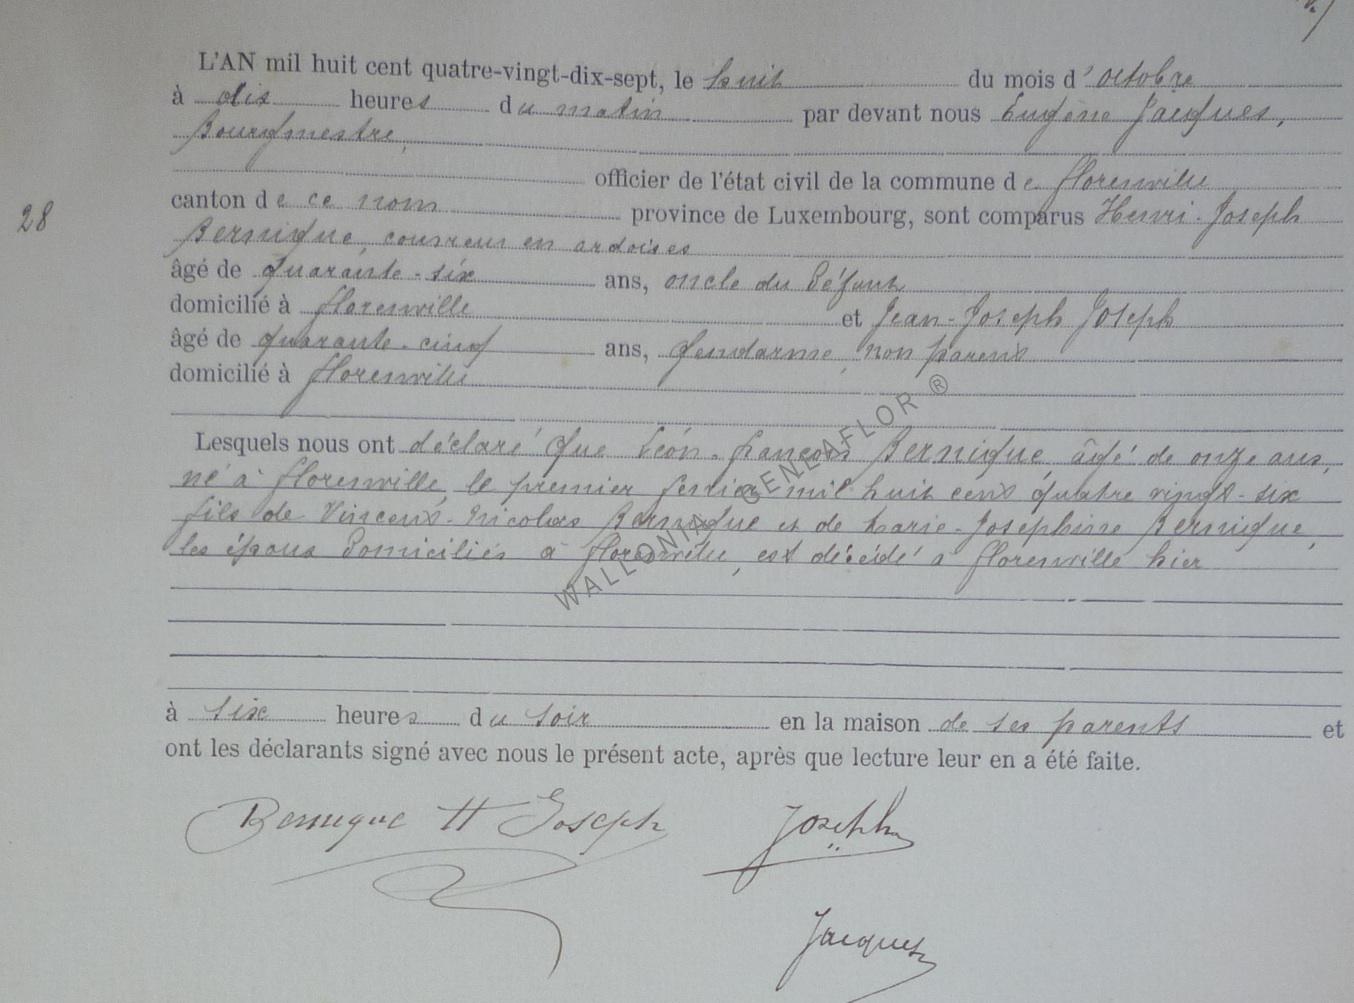 L'AN mil huit cent quatre-vingt-dix-sept, le huit du mois d'octobre
à dix heures du matin par devant nous Eugène Jacques,
Bourgmestre,
officier de l'état civil de la commune de Florenville
28
canton de ce nom province de Luxembourg, sont comparus Henri-Joseph
Bernique, couvreur en ardoises
âgé de quarante-six ans, oncle du défunt
domicilié à Florenville et Jean-Joseph Joseph
âgé de quarante-cinq ans, gendarme, non parent
domicilié à Florenville
Lesquels nous ont déclaré que Léon-François Bernique, âgé de onze ans,
né à Florenville, le premier février mil huit cent quatre vingt-six
fils de Vincent-Nicolas Bernique et de Marie-Joséphine Bernique,
les époux domiciliés à Florenville, est décédé à Florenville hier
à six heures du soir en la maison de ses parents et
ont les déclarants signé avec nous le présent acte, après que lecture leur en a été faite.
Bernique H Joseph Joseph
Jacques
WALLONIA GENEAFLOR ®